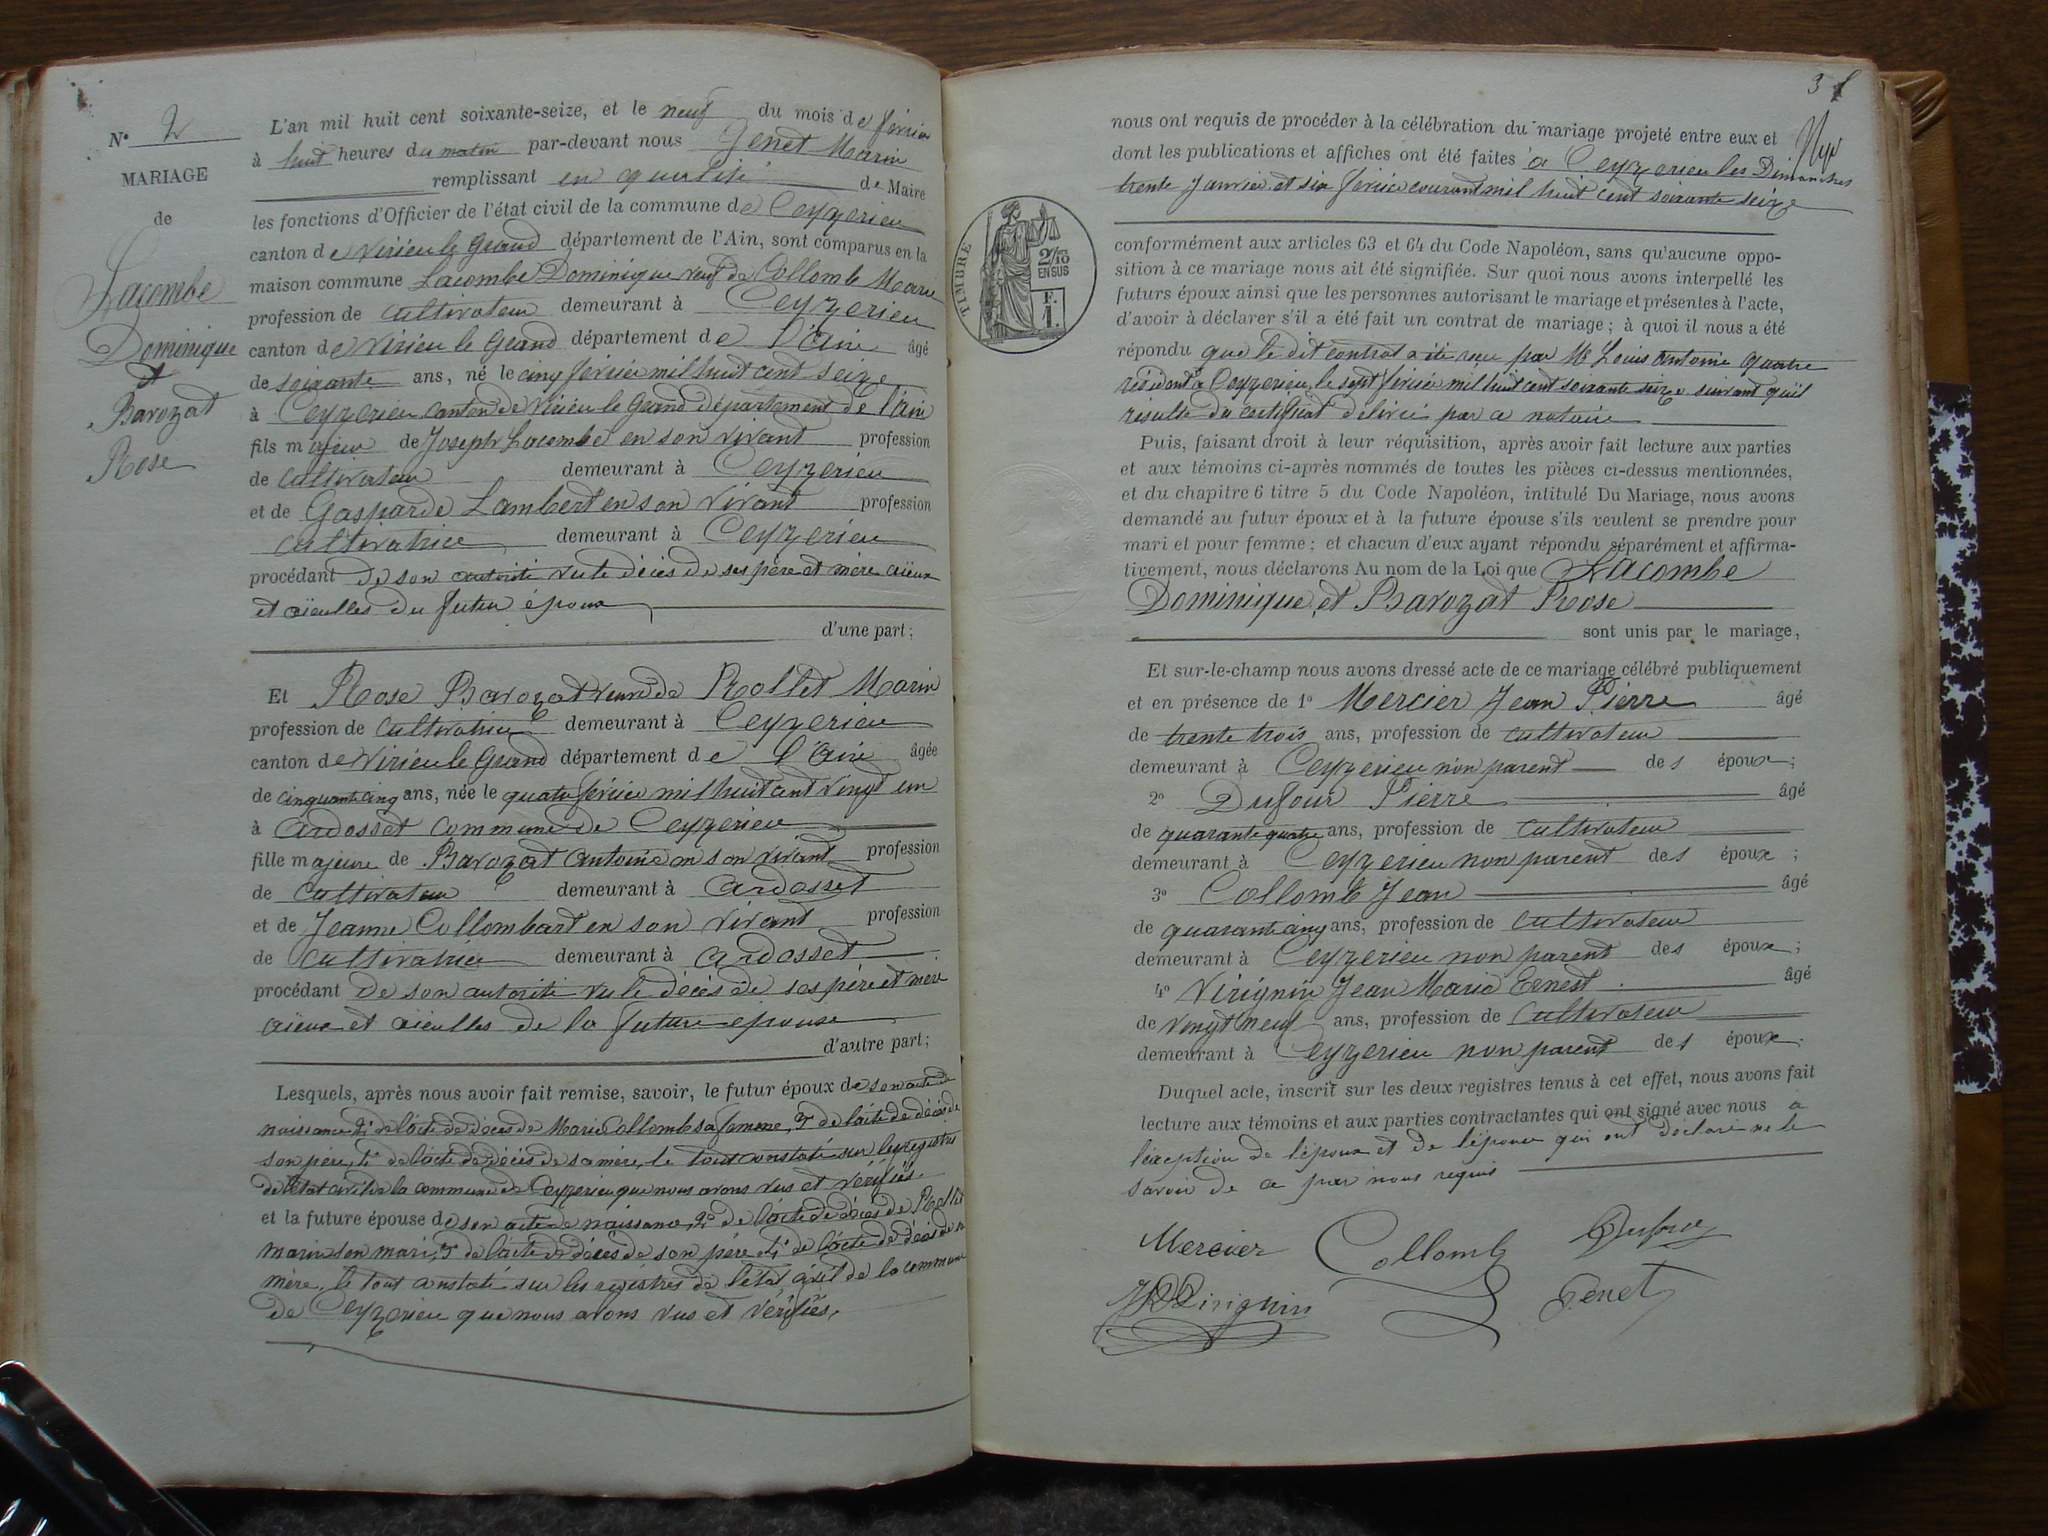 N° 2
MARIAGE
de
Lacombe
Dominique
et
Barozat
Rose
L'an mil huit cent soixante-seize, et le neuf du mois de février
à huit heures du matin par-devant nous Genet Marin
remplissant en qualité de Maire
les fonctions d'Officier de l'état civil de la commune de Ceyzerieu
canton de Virieu le Grand département de l'Ain, sont comparus en la
maison commune Lacombe Dominique veuf de Collomb Marie
profession de cultivateur demeurant à Ceyzerieu
canton de Virieu le Grand département de l'Ain âgé
de soixante ans, né le cinq février mil huit cent seize
à Ceyzerieu canton de Virieu le Grand département de l'ain
fils majeur de Joseph Lacombe en son vivant profession
de cultivateur demeurant à Ceyzerieu
et de Gasparde Lambert en son vivant profession
cultivatrice demeurant à Ceyzérieu
procédant de son autorité vu le décès de ses père et mère aïeux
et aïeulles du futur époux
d'une part;
Et Rose Barozat veuve de Rollet Marin
profession de cultivatrice demeurant à Ceyzerieu
canton de Virieu le Grand département de l'Ain âgée
de cinquante cinq ans, née le quatre février mil huit cent vingt un
à Ardosset commune de Ceyzerieu
fille majeure de Barozat Antoine en son vivant profession
de cultivateur demeurant à Ardosset
et de Jeanne Collombart en son vivant profession
de cultivatrice demeurant à Ardosset
procédant de son autorité vu le décès de ses père et mère
aïeux et aïeulles de la future épouse
d'autre part;
Lesquels, après nous avoir fait remise, savoir, le futur époux de son acte de
naissance 2° de l'acte de décès de Marie Collomb sa femme, 3° de l'acte de décès de
son père, 4° de l'acte de décès de sa mère, le tout constaté sur les registres
de l'état civil de la commune de Ceyzerieu que nous avons vus et vérifiés.
et la future épouse de son acte de naissance, 2° de l'acte de décès de Rollet
Marin son mari, 3° de l'acte de décès de son père et 4° de l'acte de décès de sa
mère, le tout constaté sur les registres de l'état civil de la commune
de Ceyzerieu que nous avons vus et vérifiés.
3
nous ont requis de procéder à la célébration du mariage projeté entre eux et
dont les publications et affiches ont été faites à Ceyzerieu les Dimanches
trente Janvier et six février courant mil huit cent soixante seize
TIMBRE
2/10
EN SUS
F.
1.
conformément aux articles 63 et 64 du Code Napoléon, sans qu'aucune oppo-
sition à ce mariage nous ait été signifiée. Sur quoi nous avons interpellé les
futurs époux ainsi que les personnes autorisant le mariage et présentes à l'acte,
d'avoir à déclarer s'il a été fait un contrat de mariage; à quoi il nous a été
répondu que le dit contrat a été reçu par Me Louis Antoine
résidant à Ceyzerieu, le sept février mil huit cent soixante seize suivant qu'il
résulte du certificat délivré par ce notaire
Puis, faisant droit à leur réquisition, après avoir fait lecture aux parties
et aux témoins ci-après nommés de toutes les pièces ci-dessus mentionnées,
et du chapitre 6 titre 5 du Code Napoléon, intitulé Du Mariage, nous avons
demandé au futur époux et à la future épouse s'ils veulent se prendre pour
mari et pour femme; et chacun d'eux ayant répondu séparément et affirma-
tivement, nous déclarons Au nom de la Loi que Lacombe
Dominique, et Barozat Rose
sont unis par le mariage,
Et sur-le-champ nous avons dressé acte de ce mariage célébré publiquement
et en présence de 1° Mercier Jean Pierre âgé
de trente trois ans, profession de cultivateur
demeurant à Ceyzerieu non parent des époux;
2° Dufour Pierre âgé
de quarante quatre ans, profession de cultivateur
demeurant à Ceyzerieu non parent des époux;
3° Collomb Jean âgé
de quarante cinq ans, profession de cultivateur
demeurant à Ceyzerieu non parent des époux;
4° Virignin Jean Marie Ernest âgé
de vingt neuf ans, profession de cultivateur
demeurant à Ceyzerieu non parent des époux.
Duquel acte, inscrit sur les deux registres tenus à cet effet, nous avons fait
lecture aux témoins et aux parties contractantes qui ont signé avec nous à
l'exception de l'époux et de l'épouse qui ont déclaré ne le
savoir de ce par nous requis
Mercier Collomb Dufour
Virignin Genet